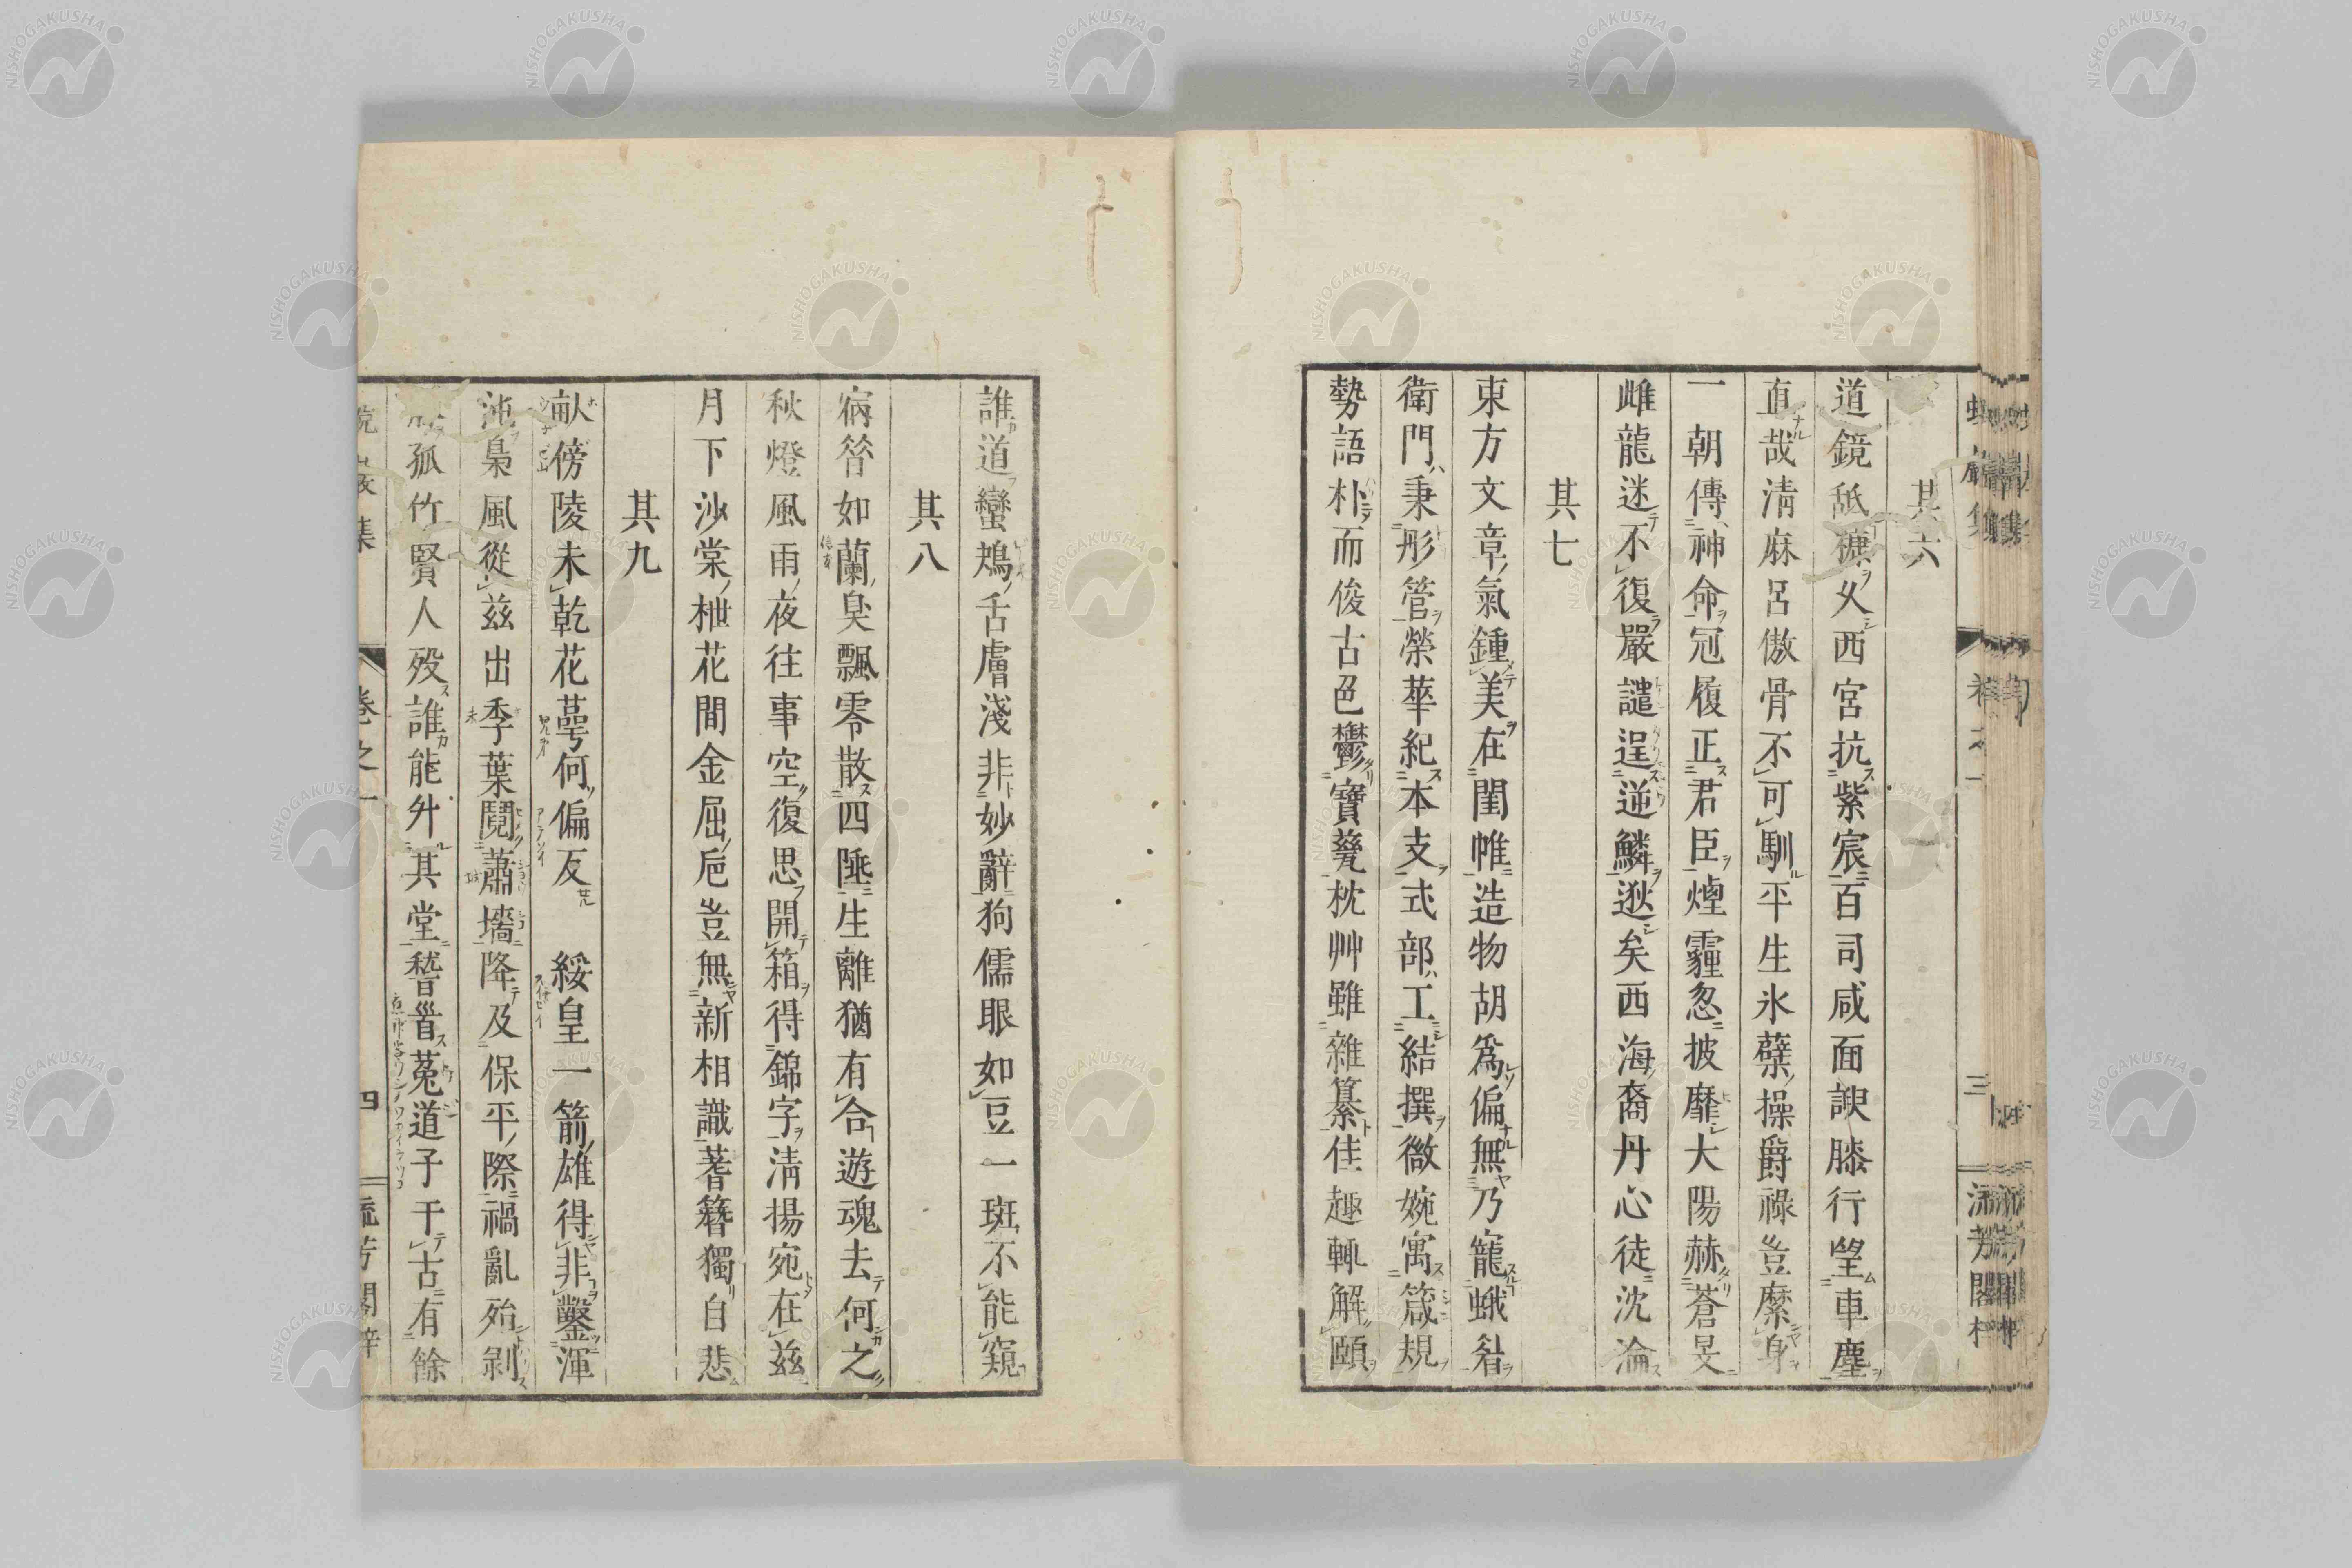 其六
道鏡舐糠久西宮抗紫宸百司咸面諛膝行望車塵
直哉清麻呂傲骨不可馴平生氷蘖操爵祿豈縻身
一朝傳神命冠履正君臣煙霾忽披靡大陽赫蒼旻
雌龍迷不復嚴譴逞逆鱗逖矣西海裔丹心徒沈淪
其七
東方文章氣鍾美在閨帷造物胡爲偏無乃寵蛾眉
衛門秉彤管榮華紀本支式部工結撰微婉寓箴規
勢語朴而俊古色鬱寶甃枕艸雖雜纂佳趣輒解頤
三
誰道蠻鴂舌膚淺非妙辭狗儒眼如豆一斑不能窺
其八
病昝如蘭臭飄零散四陲生離猶有合遊魂去何之
秋燈風雨夜往事空復思開箱得錦字清揚宛在茲
月下沙棠枻花間金屈巵豈無新相識蓍簪獨自悲
其九
畝傍陵未乾花萼何偏反 綏皇一箭雄得非鑿渾
沌梟風從茲出季葉鬩蕭墻降及保平際禍亂殆剝
孤竹賢人歿誰能升其堂嗟昔菟道子干古有餘
卷之一
四
NISHOGAKUSHA